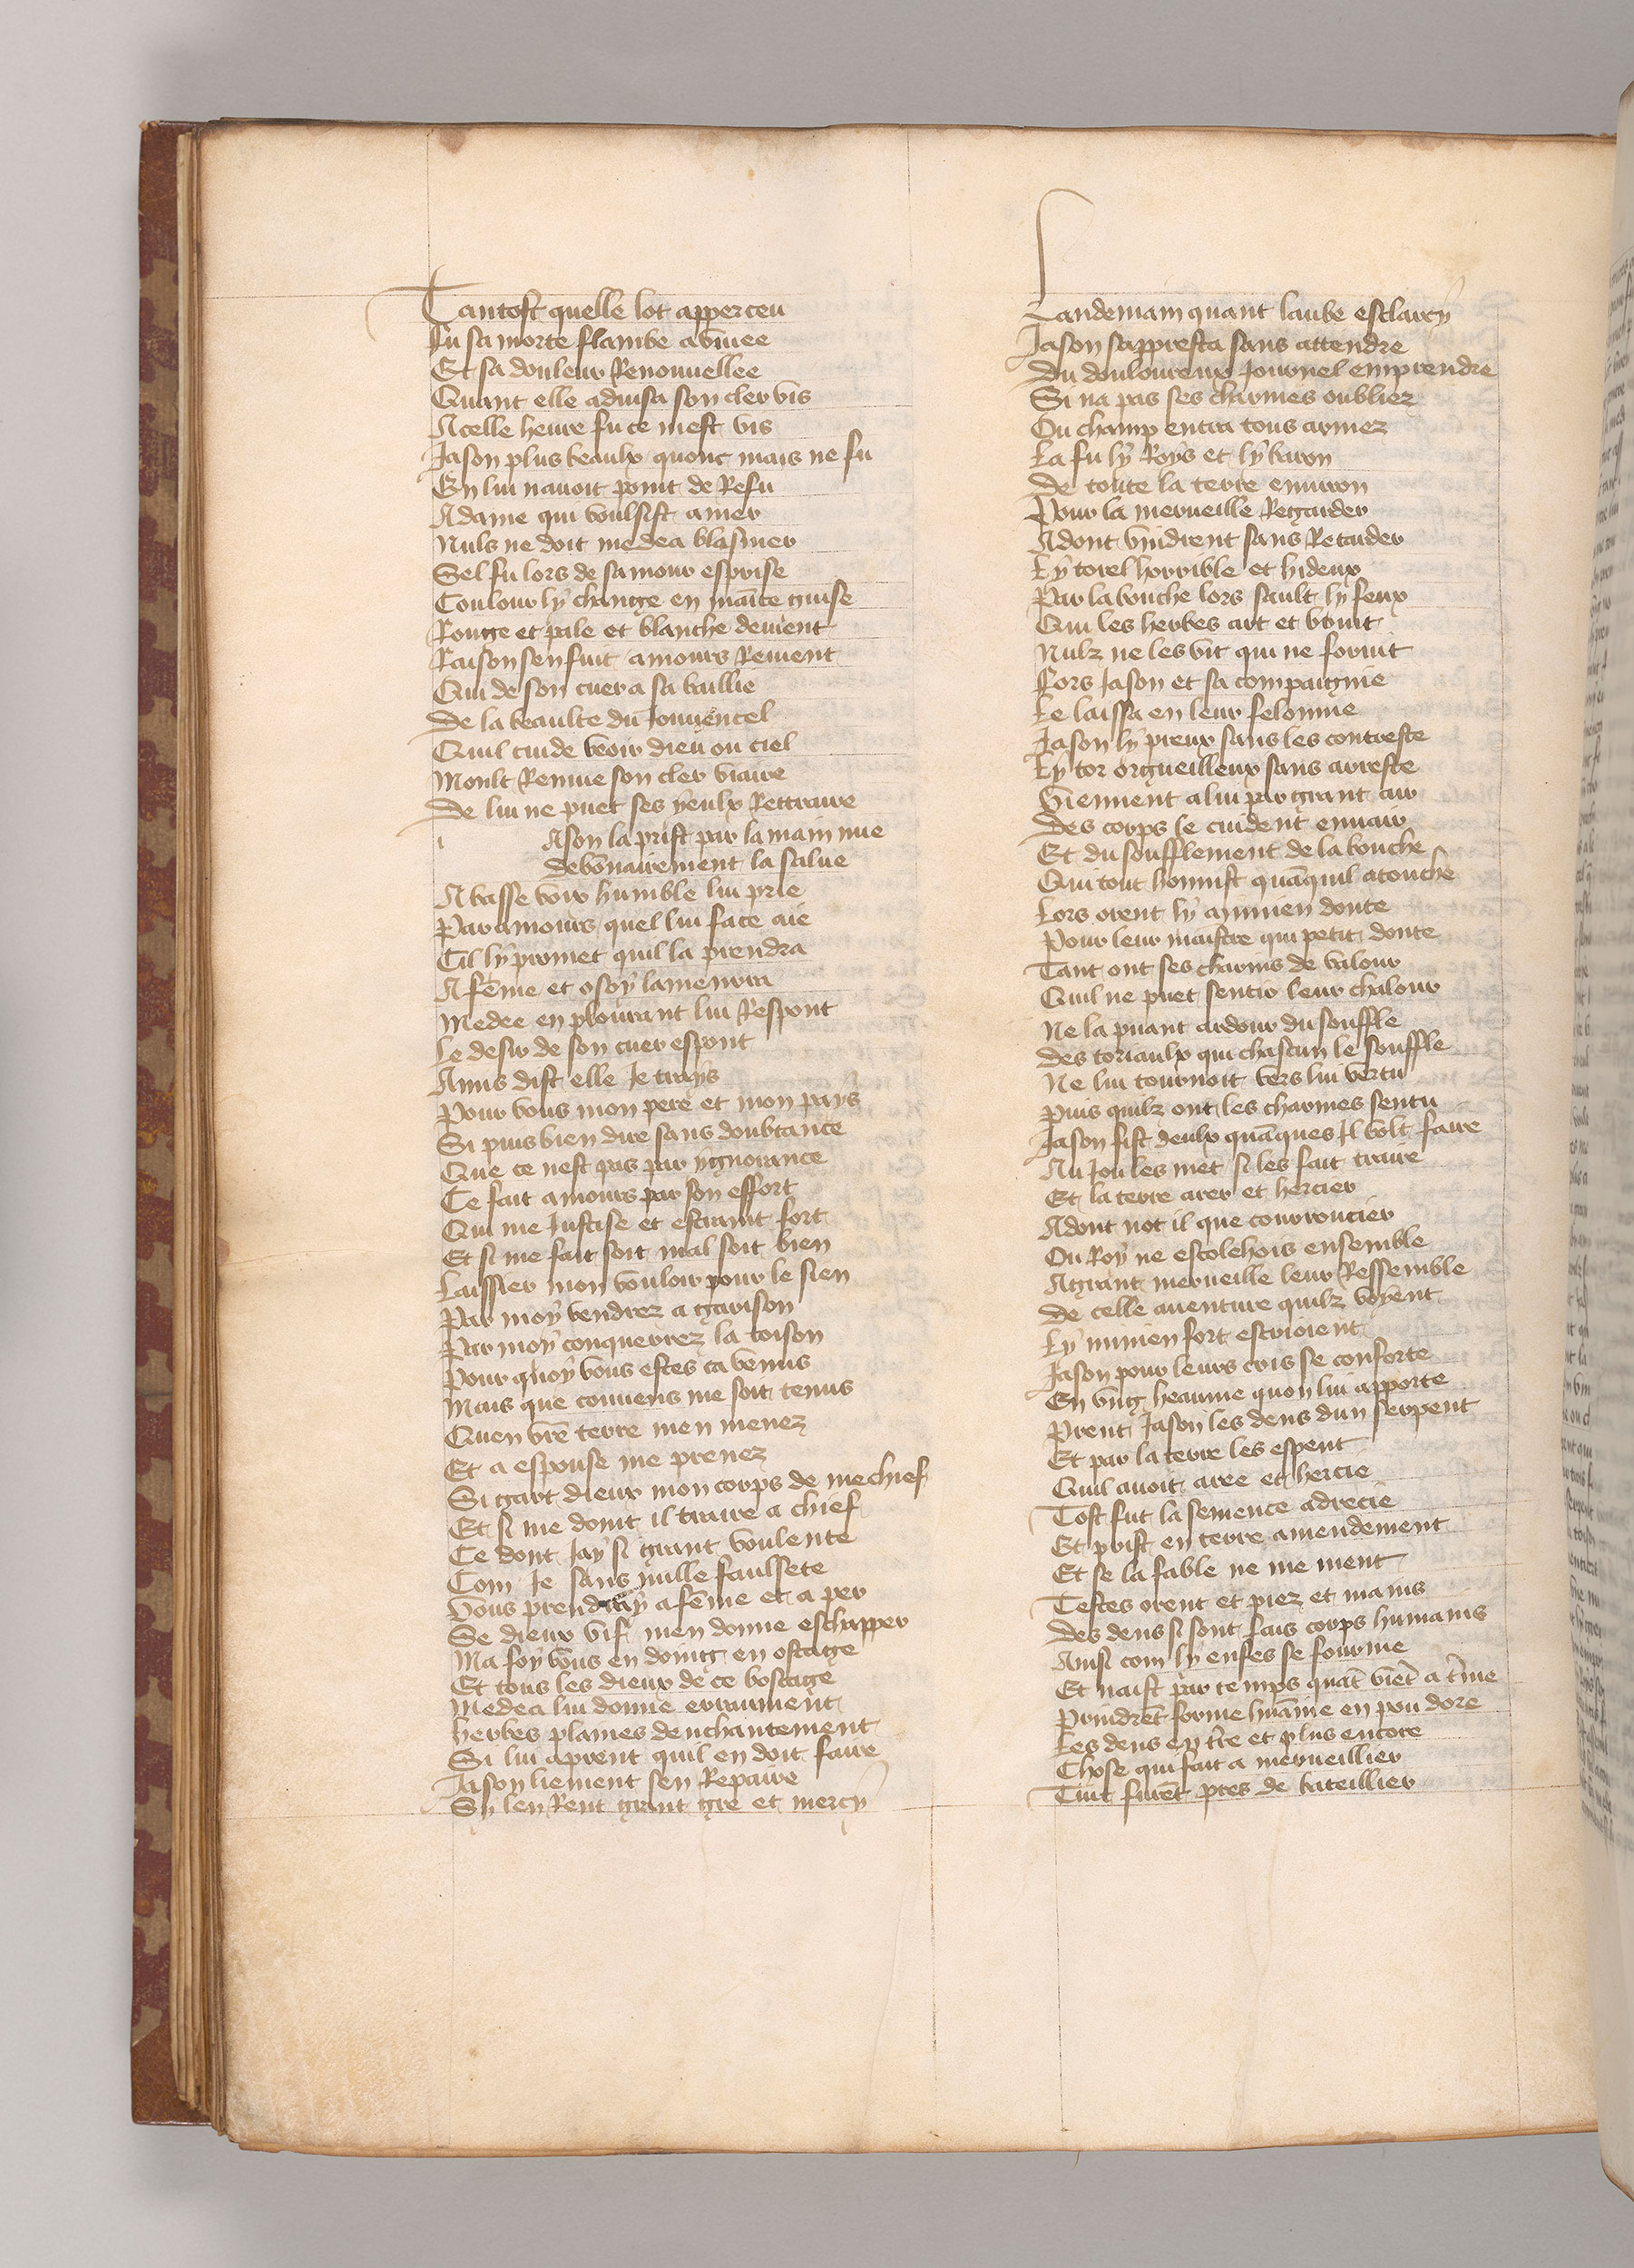 Tantost quelle lot apperceu
Fu sa morte flambe avivee
Et sa douleur Renouvellee
Quant elle advisa son cler vis
A celle heure fu ce mest vis
Jason plus beaulx quonc mais ne fu
En lui navoit point de Refu
A dame qui voulsist amer
Nuls ne doit medea blasmer
Sel fu lors de samour esprise
Coulour ly change en mainte guise
Rouge et pale et blanche devient
Raison senfuit amours Revient
Qui de son cuer a sa baillie
De la beaulte du Jouvencel
Quil cuide veoir dieu ou ciel
Moult Remire son cler viaire
De lui ne puet ses yeulx Rettraire
i Ason la prist par la main nue
debonairement la salue
A basse voix humble lui prie
Par amours quel lui face aie
Cil ly promet quil la prendra
A fēme et o soy lamenra
Medee en plourant lui Respont
Le desir de son cuer espont
Amis dist elle Je trays
Pour vous mon pere et mon pays
Si puis bien dire sans doubtance
Que ce nest pas par ygnorance
Ce fait amours par son effort
Qui me Justise et estraint fort
Et si me fait soit mal soit bien
Laissier mon vouloir pour le sien
Par moy vendrez a garison
Par moy conquerrez la toison
Pour quoy vous estes ca venus
Mais que convens me soit tenus
Quen vrē terre men menez
Et a espouse me prenez
Si gart dieux mon corps de mechief
Et si me doint il traire a chief
Ce dont Jay si grant voulente
Com Je sans nulle faulsete
Vous prendray a fēme et a per
Se dieux vif men donne eschapper
Ma foy vous en doing en ostage
Et tous les dieux de ce boscage
Medea lui donne erraument
herbes plaines denchantement
Si lui aprent quil en doit faire
Jason liement sen Repaire
Sy len Rent grant gre et mercy
Landemain quant laube esclarcy
Jason sappresta sans attendre
Du douloureux Journel emprendre
Si na pas ses charmes oubliez
Ou champ entra tous armez
La fu ly Roys et ly baron
De toute la terre environ
Pour la merveille Regarder
Adont vindrent sans Retarder
Ly torel horrible et hideux
Par la bouche lors sault ly feux
Qui les herbes art et bruit
Nulz ne les vit qui ne fornit
Lors Jason et sa compaignie
Le laissa en leur felonnie
Jason ly preux sans les contreste
Ly tor orgueilleux sans arreste
Viennent a lui par grant air
Des corps le cuident envair
Et du soufflement de la bouche
Qui tout honnist quāquil atouche
Lors orent ly ammien doute
Pour leur maistre qui petit doute
Tant ont ses charms de valour
Quil ne puet sentir leur chalour
Ne la puant ardour du souffle
Des toriaulx qui chascun le souffle
Ne lui tournoit vers lui vertu
Puis quilz ont les charmes sentu
Jason fist deulx quāques Il volt faire
Au Jou les met si les fait traire
Et la terre arer et hercier
Adont not il que courroucier
Ou Roy ne es colchois ensemble
A grant merveille leur Ressemble
De celle aventure quilz voyent
Ly minien fort escrioient
Jason pour leurs cris se conforte
En ung heaume quon lui apporte
Prent Jason les dens dun serpent
Et par la terre les espent
Quil avoit aree et hercie
Tost fut la semence adrecie
Et prist en terre amendement
Et se la fable ne me ment
Testes orent et piez et mains
Des dens si sont fais corps humains
Ainsi com ly enfes se fourme
Et naist par temps quāt viēt a t'me
Prindrēt forme humāine en pou dore
Les dens en t're et plus encore
Chose qui fait a merveillier
Tuit furēt pres de bateillier